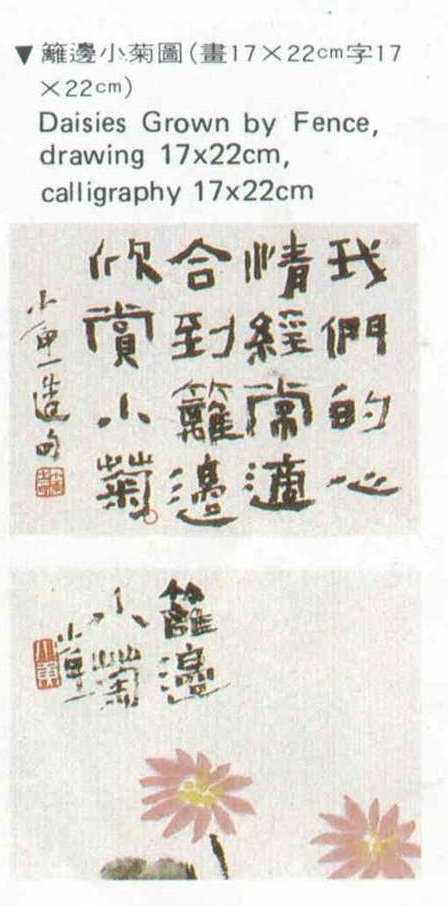 ▼籬邊小菊圖(畫17×22cm字17
×22cm)
Daisies Grown by Fence,
drawing 17x22cm,
calligraphy 17x22cm
我們的心
情經常適
合到籬邊
欣賞小菊。
造句
籬邊
小菊